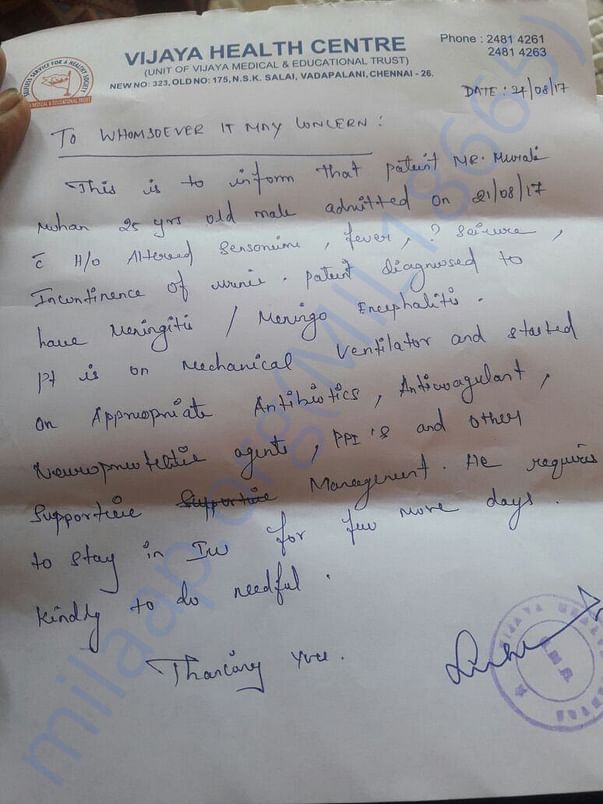 VIJAYA HEALTH CENTRE
(UNIT OF VIJAYA MEDICAL & EDUCATIONAL TRUST)
NEW NO: 323, OLD NO: 175, N.S.K. SALAI, VADAPALANI, CHENNAI - 26.
Phone : 2481 4261
2481 4263
DATE : 24/08/17
TO WHOMSOEVER IT MAY CONCERN :
This is to inform that patient MR. Murali
Mohan 25 yrs old male admitted on 21/08/17
c̄ H/o Altered Sensorium, fever, ? Seizure,
Incontinence of urine. patient diagnosed to
have Meningitis / Meningo Encephalitis.
pt is on Mechanical Ventilator and started
on Appropriate Antibiotics, Anticoagulant,
agents, PPI's and other
Supportive Supportive Management. He requires
to stay in for few more days.
Kindly to do needful.
Thanking you.
milaap.org